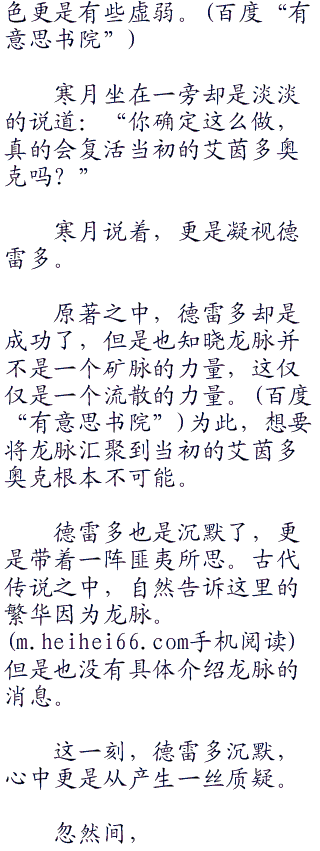 色更是有些虚弱。(百度“有
意思书院”)
寒月坐在一旁却是淡淡
的说道：“你确定这么做，
真的会复活当初的艾茵多奥
克吗？”
寒月说着，更是凝视德
雷多。
原著之中，德雷多却是
成功了，但是也知晓龙脉并
不是一个矿脉的力量，这仅
仅是一个流散的力量。(百度
“有意思书院”)为此，想要
将龙脉汇聚到当初的艾茵多
奥克根本不可能。
德雷多也是沉默了，更
是带着一阵匪夷所思。古代
传说之中，自然告诉这里的
繁华因为龙脉。
(m.heihei66.com手机阅读)
但是也没有具体介绍龙脉的
消息。
这一刻，德雷多沉默，
心中更是从产生一丝质疑。
忽然间，